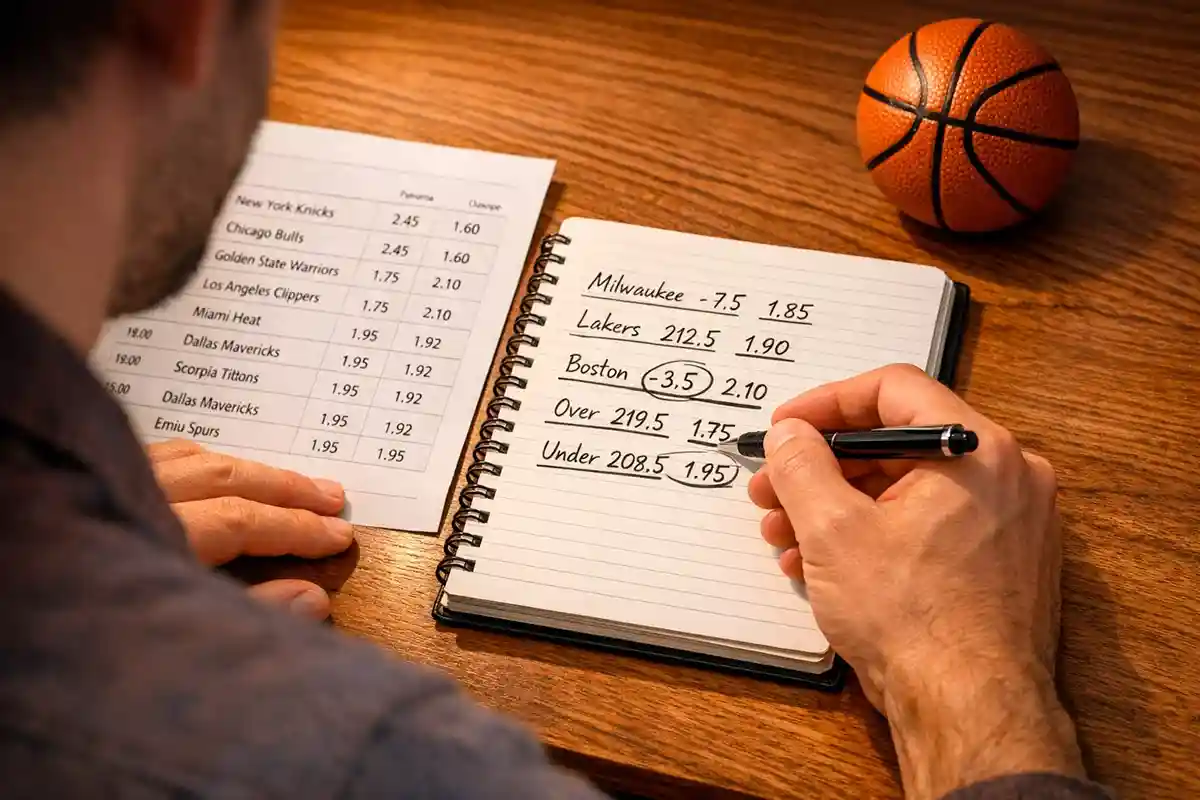 New York Knicks 2.45 1.60
Chicago Bulls 2.45 1.60
Golden State Warriors 1.75 2.10
Los Angeles Clippers 1.75 2.10
Miami Heat 1.95 1.92
Dallas Mavericks 1.95 1.92
19:00 Scorpia Tittons 1.95 1.92
Dallas Mavericks 1.95 1.92
Emiu Spurs 1.95 1.95
Milwaukee -7.5 1.85
Lakers 212.5 1.90
Boston -3.5 2.10
Over 219.5 1.75
Under 208.5 1.95